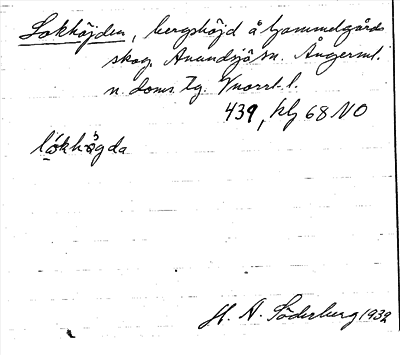 Lokhöjden, bergshöjd å Gammelgårds
skog. Anundsjö sn. Ångerml.
n. doms. Tg. Vnorrl. l.
439, klj 68 NO
lókhö̀gda
H. A. Söderberg 1932